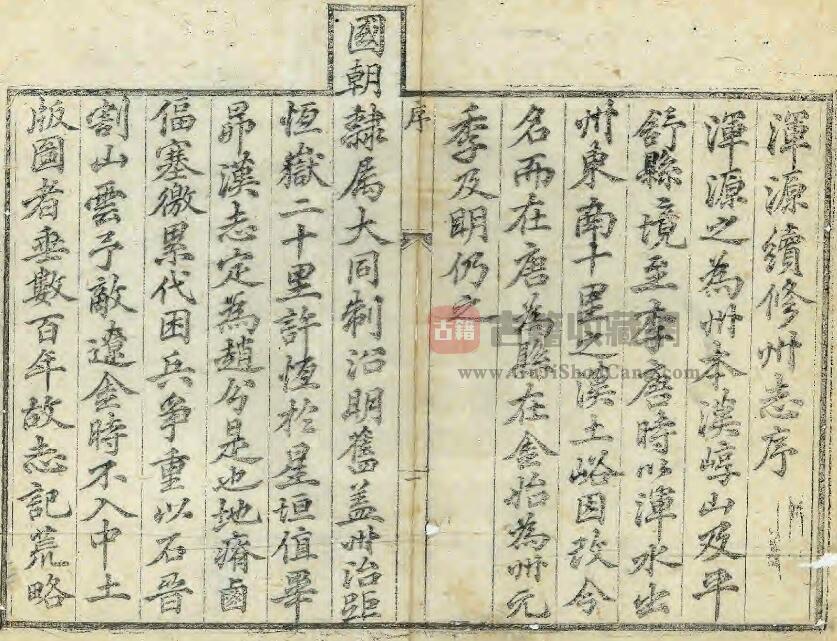 渾源續修州志序
渾源之為州本漢崞山及平
舒縣境至李唐時以渾水出
州東南十里之漢土峪因改今
名而在唐為縣在金始為州元
季及明仍之
序
一
國朝隸屬大同制沿明舊蓋州治距
恆嶽二十里許恆於星垣值畢
昴漢志定為趙分是也地瘠鹵
偪塞徼累代困兵爭重以石晉
割山雲予敵遼金時不入中土
版圖者垂數百年故志記荒略
古籍
古籍收藏網
www.GuJiShouCang.com